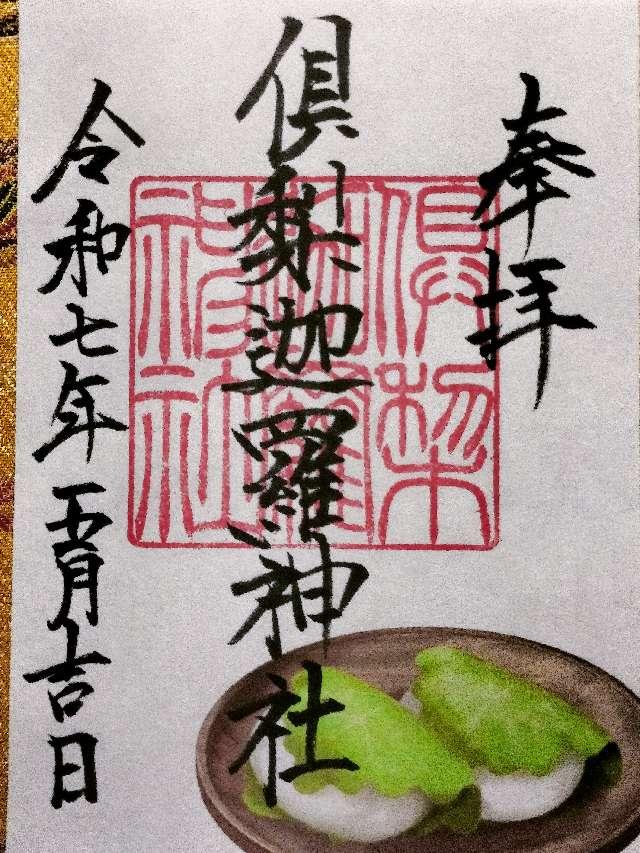 奉拝
倶梨迦羅神社
令和七年五月吉日
倶梨
迦羅
神社